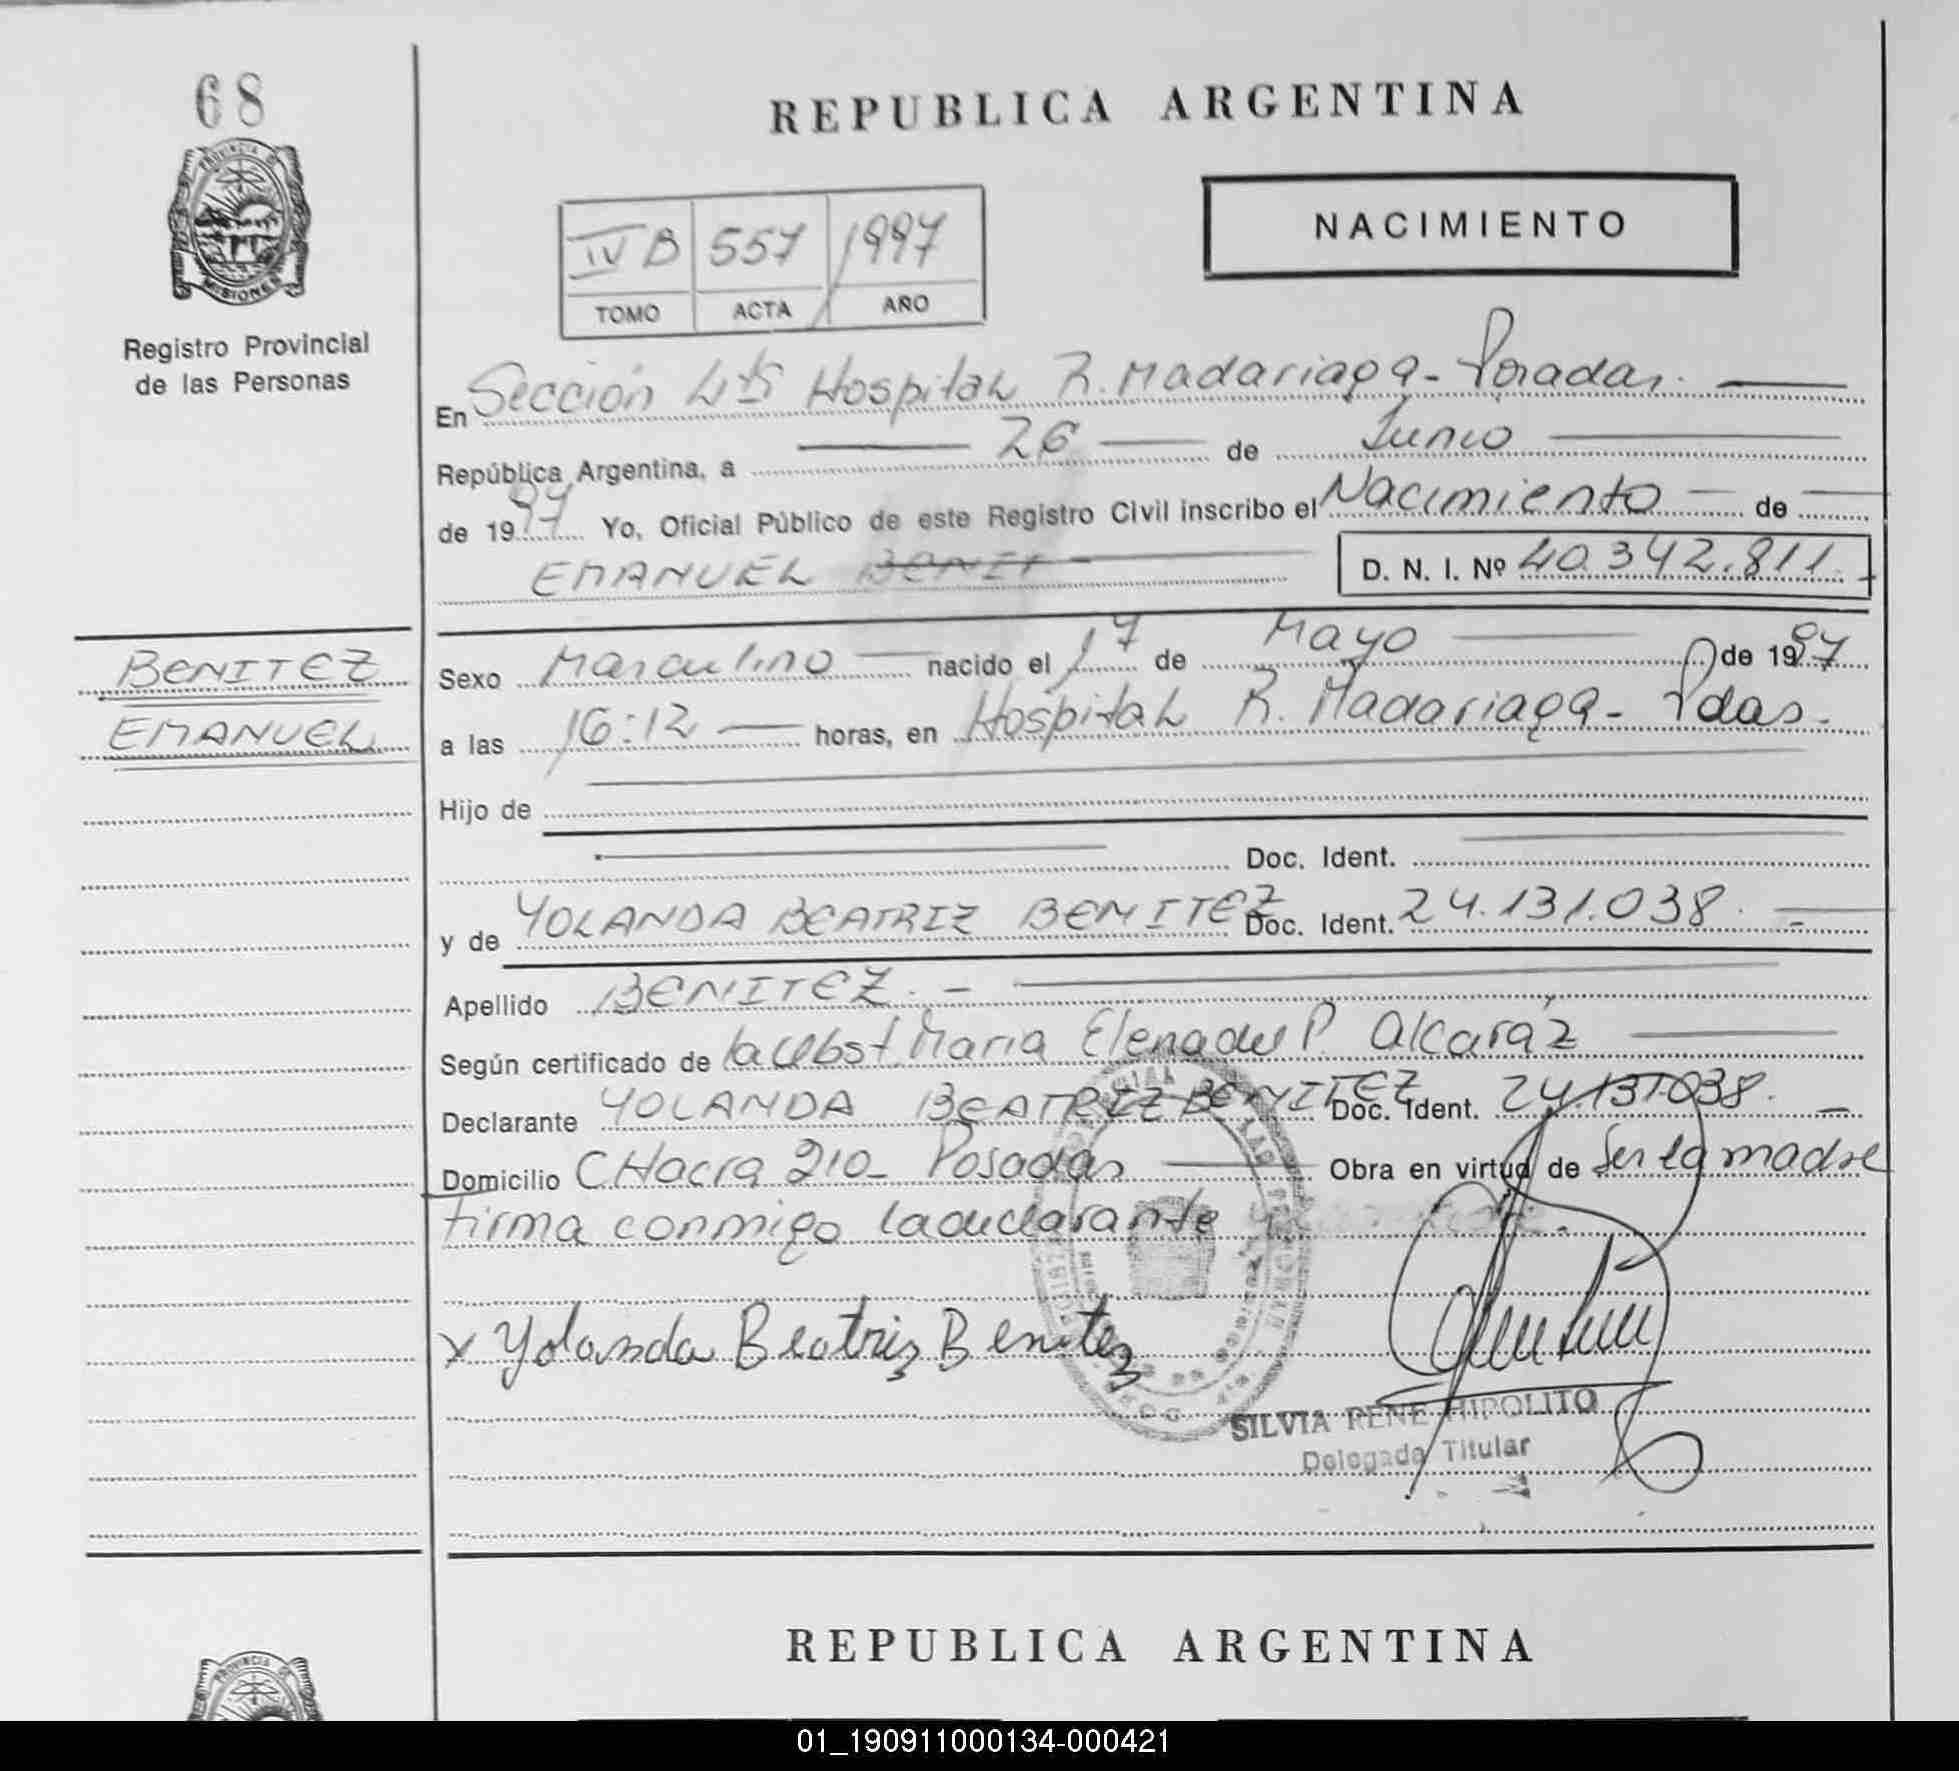 68
REPUBLICA ARGENTINA
NACIMIENTO
IV B 557 1997
TOMO ACTA AÑO
PROVINCIA DE
MISIONES
Registro Provincial
de las Personas
En Sección 4ta Hospital R. Madariaga - Posadas.
República Argentina, a 26 de Junio
de 1997 Yo, Oficial Público de este Registro Civil inscribo el Nacimiento de
EMANUEL BENIT D. N. I. Nº 40.342.811.
BENITEZ
EMANUEL
Sexo Masculino nacido el 17 de Mayo de 1997
a las 16:12 horas, en Hospital R. Madariaga - Pdas.
Hijo de
Doc. Ident.
y de YOLANDA BEATRIZ BENITEZ Doc. Ident. 24.131.038.
Apellido BENITEZ.-
Según certificado de la Obst. Maria Elena del P. Alcaráz
Declarante YOLANDA BEATRIZ BENITEZ Doc. Ident. 24.131.038.
Domicilio CHacra 210 - Posadas Obra en virtud de Ser la madre
firma conmigo la declarante
x Yolanda Beatriz Benitez
SILVIA RENE HIPOLITO
Delegada Titular
REPUBLICA ARGENTINA
PROVINCIA DE
01_190911000134-000421